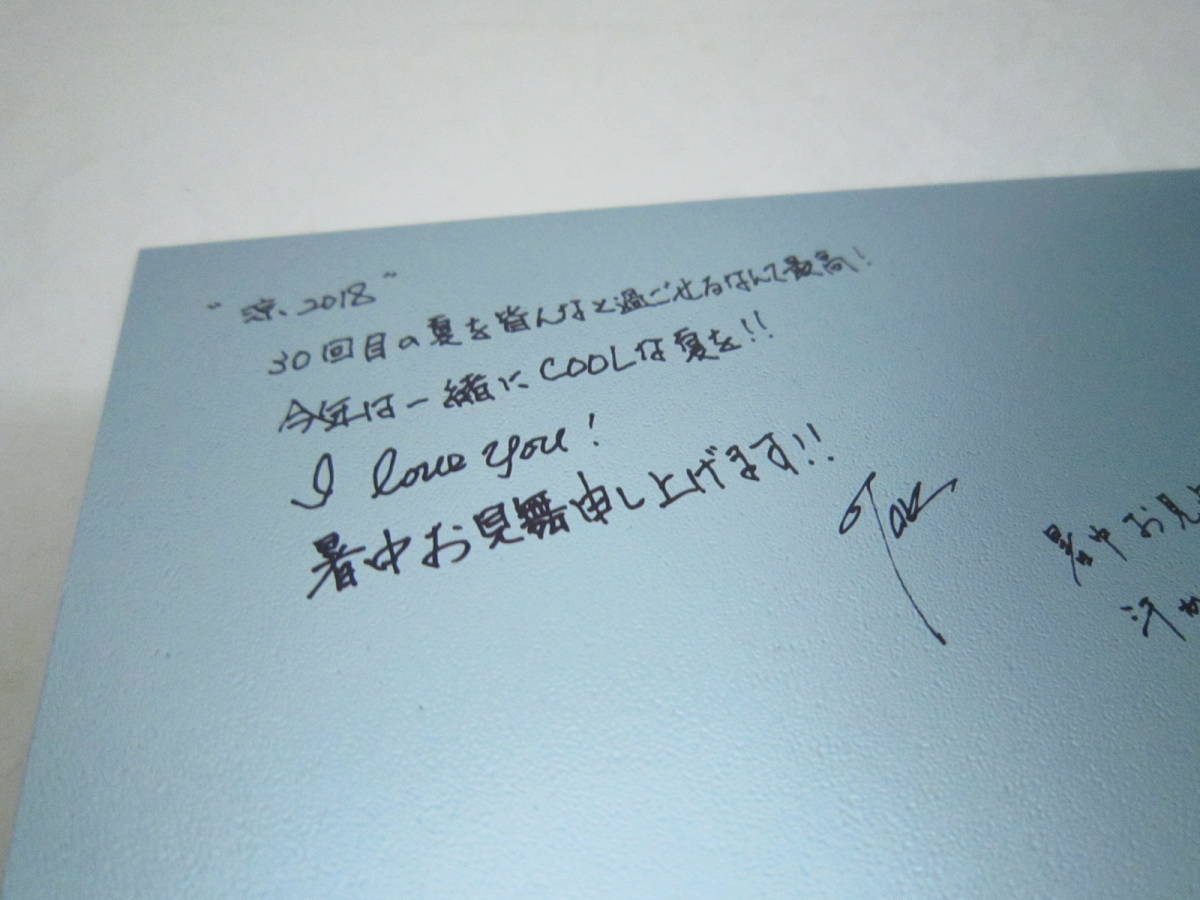 "涼、2018"
30回目の夏を皆んなと過ごせるなんて最高!
今年は一緒にCOOLな夏を!!
I love you!
暑中お見舞申し上げます!!
Tak
暑中お見
汗か